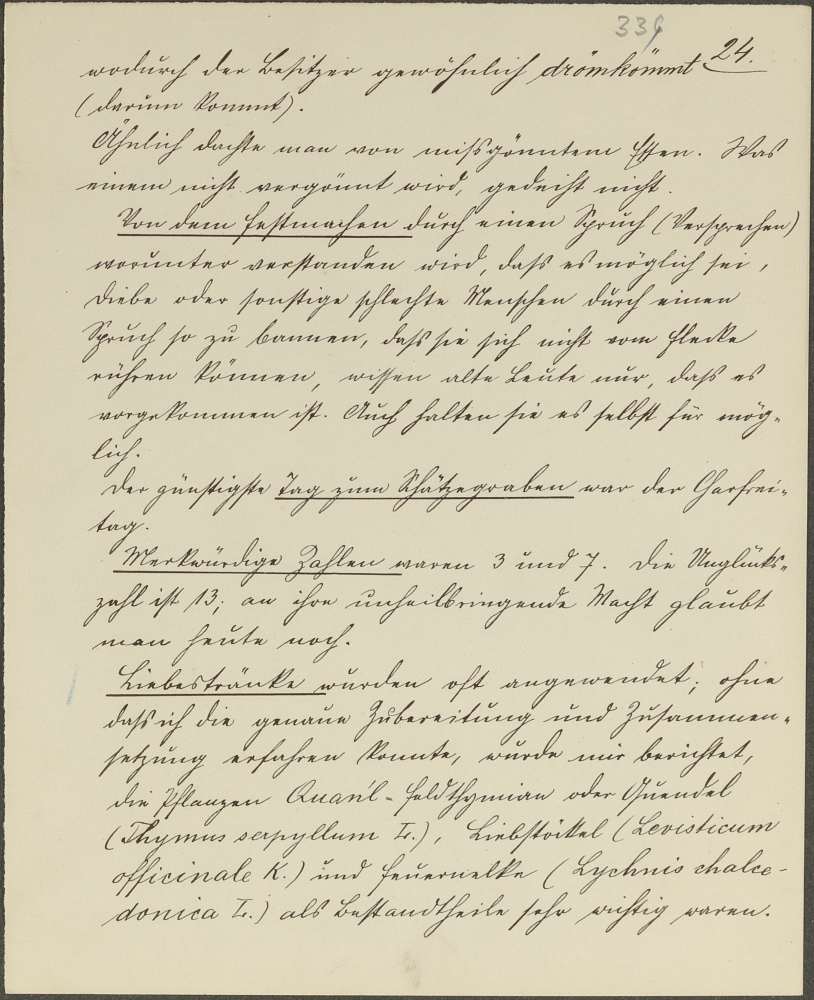 339
24.
wodurch der Besitzer gewöhnlich drömkömmt
(darum kommt).
Ähnlich dachte man von missgönntem Essen. Was
einem nicht vergönnt wird, gedeiht nicht.
Von dem Festmachen durch einen Spruch (Versprechen)
worunter verstanden wird, dass es möglich sei,
Diebe oder sonstige schlechte Menschen durch einen
Spruch so zu bannen, dass sie sich nicht vom Flecke
rühren können, wissen alte Leute nur, dass es
vorgekommen ist. Auch halten sie es selbst für mög-
lich.
Der günstigste Tag zum Schätzegraben war der Charfrei-
tag.
Merkwürdige Zahlen waren 3 und 7. Die Unglücks-
zahl ist 13; an ihre unheilbringende Macht glaubt
man heute noch.
Liebestränke wurden oft angewendet; ohne
dass ich die genaue Zubereitung und Zusammen-
setzung erfahren konnte, wurde mir berichtet,
die Pflanzen Quan'l - Feldthymian oder Quendel
(Thymus serpyllum L.), Liebstöckel (Levisticum
officinale K.) und Feuernelke (Lychnis chalce-
donica L.) als Bestandtheile sehr wichtig waren.